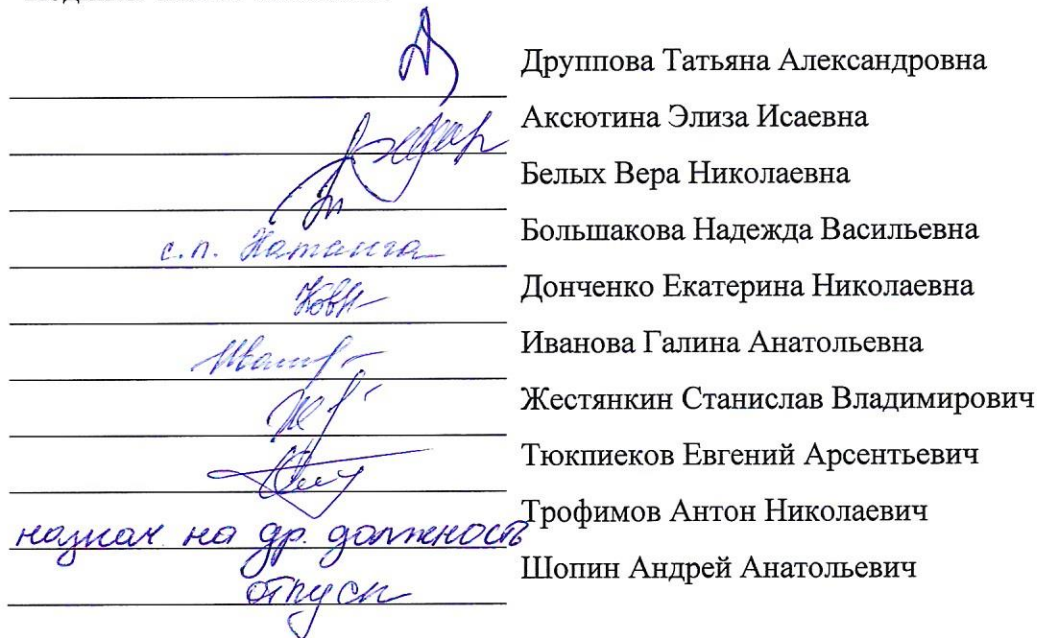 Друппова Татьяна Александровна
Аксютина Элиза Исаевна
Белых Вера Николаевна
с.п. Хатанга Большакова Надежда Васильевна
Донченко Екатерина Николаевна
Иванова Галина Анатольевна
Жестянкин Станислав Владимирович
Тюкпиеков Евгений Арсентьевич
назнач на др. должность Трофимов Антон Николаевич
отпуск Шопин Андрей Анатольевич